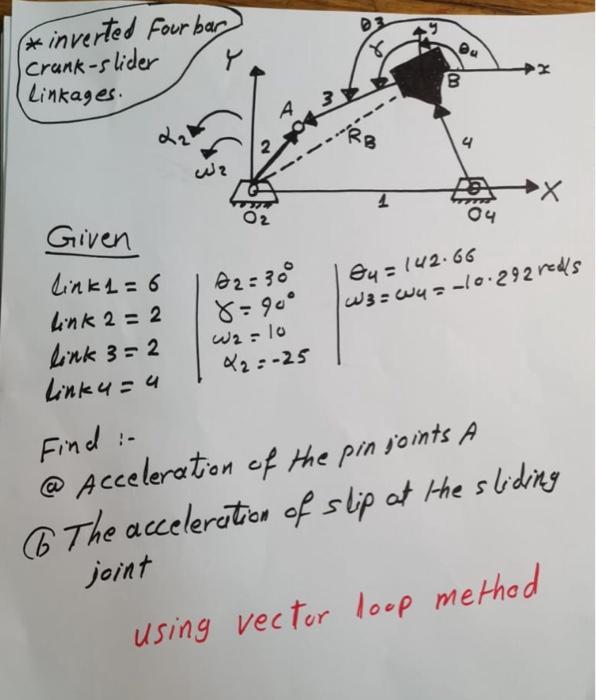 * inverted Four bar
Crank-slider
Linkages.
Y
θ3
y
γ
θ4
x
B
A
3
2
RB
4
α2
ω2
O2
1
O4
X
Given
Link1 = 6
Link 2 = 2
Link 3 = 2
Link4 = 4
θ2 = 30°
γ = 90°
ω2 = 10
α2 = -25
θ4 = 142.66
ω3 = ω4 = -10.292 rad/s
Find :-
ⓐ Acceleration of the pin joints A
ⓑ The acceleration of slip at the sliding
joint
using vector loop method